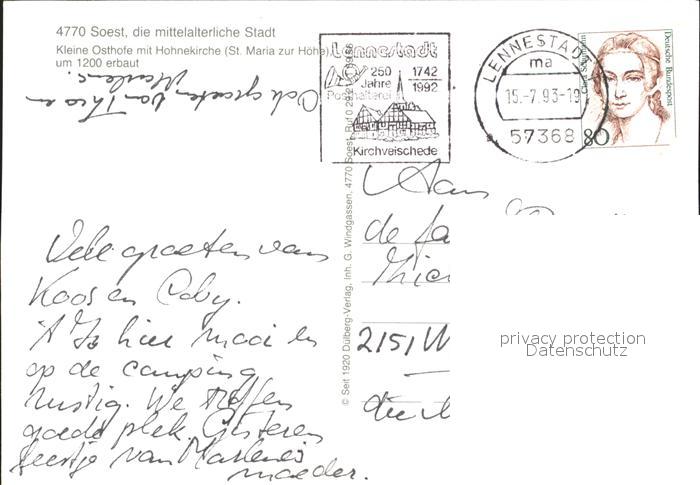 4770 Soest, die mittelalterliche Stadt
Kleine Osthofe mit Hohnekirche (St. Maria zur Höhe),
um 1200 erbaut
Ook groeten van Theo en
Marlene.
Lennestadt
250 1742
Jahre 1992
Posthalterei
Kirchveischede
LENNESTADT
ma
15.-7.93-19
57368
Clara Schumann
Deutsche Bundespost
80
© Seit 1920 Dülberg-Verlag, Inh. G. Windgassen, 4770 Soest,
Vele groeten van
Koos en Coby.
't Is hier mooi en
op de camping
rustig. We treffen
goede plek. Gisteren
feestje van Marlene's
moeder.
Aan
de fa
2151 W
privacy protection
Datenschutz